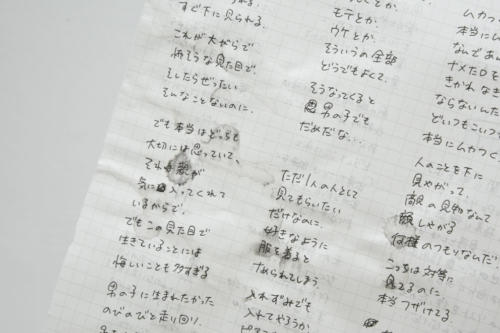 すぐ下に見られる。
これが大がらで
怖そうな見た目で、
そしたらぜったい
そんなことないのに。
でも本当はどっちも
大切には思っていて、
それは親が
気に入ってくれて
いるからで、
でもこの見た目で
生きていることには
悔しいことも多すぎる
男の子に生まれたかった
のびのびと走り回り、
モテとか、
ウケとか、
そういうの全部
どうでもよくて、
そうなってくると
男の子でも
だめだな...
ただ1人の人として
見てもらいたい
だけなのに、
好きなように
服を着ると
なめられてしまう
入れずみでも
入れてやろうか
ムカつ
本当にム
なんであん
ナメたロを
きかれなき
ならないんだ
どいつもこいつ
本当にムカつく
人のことを下に
見やがって、
敵の見物なんて
顔しやがる
何様のつもりなんだ
こっちは対等に
見てるのに
本当フザけてる